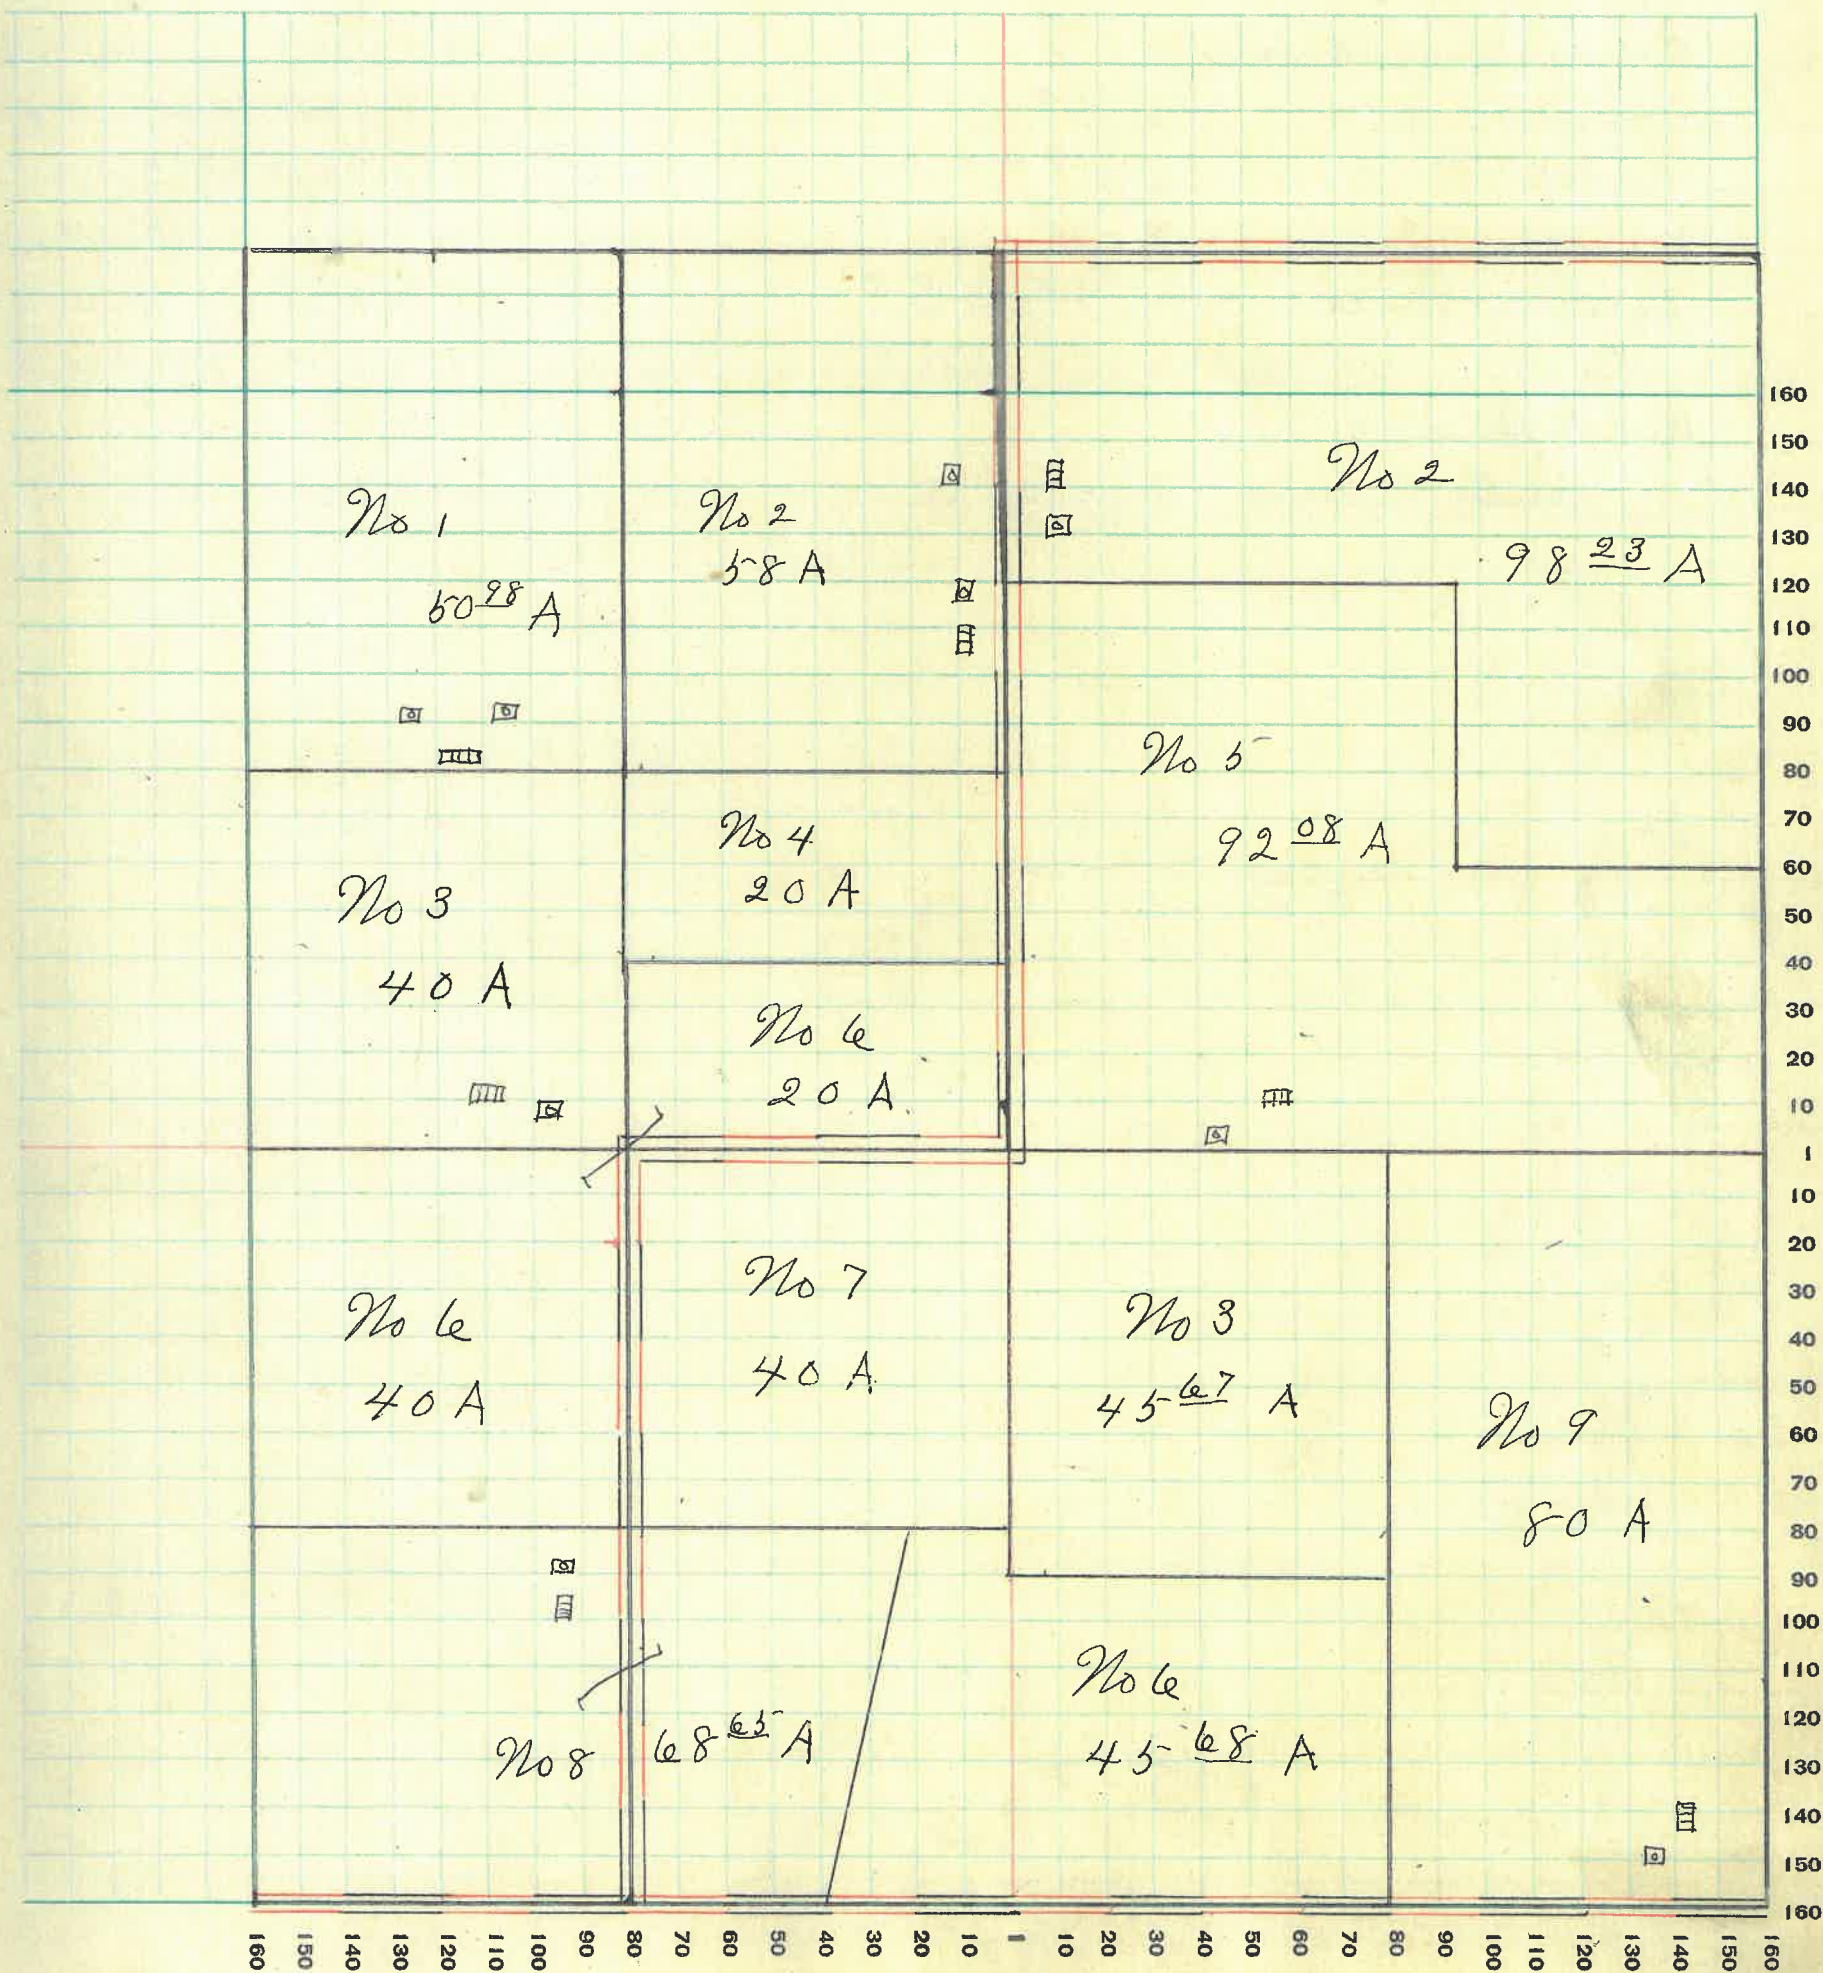 No 1
50 98 A
No 2
58 A
No 2
98 23 A
No 3
40 A
No 4
20 A
No 6
20 A
No 5
92 08 A
No 6
40 A
No 7
40 A
No 3
45 67 A
No 9
80 A
No 8 68 65 A
No 6
45 68 A
160
150
140
130
120
110
100
90
80
70
60
50
40
30
20
10
1
10
20
30
40
50
60
70
80
90
100
110
120
130
140
150
160
160 150 140 130 120 110 100 90 80 70 60 50 40 30 20 10 1 10 20 30 40 50 60 70 80 90 100 110 120 130 140 150 160